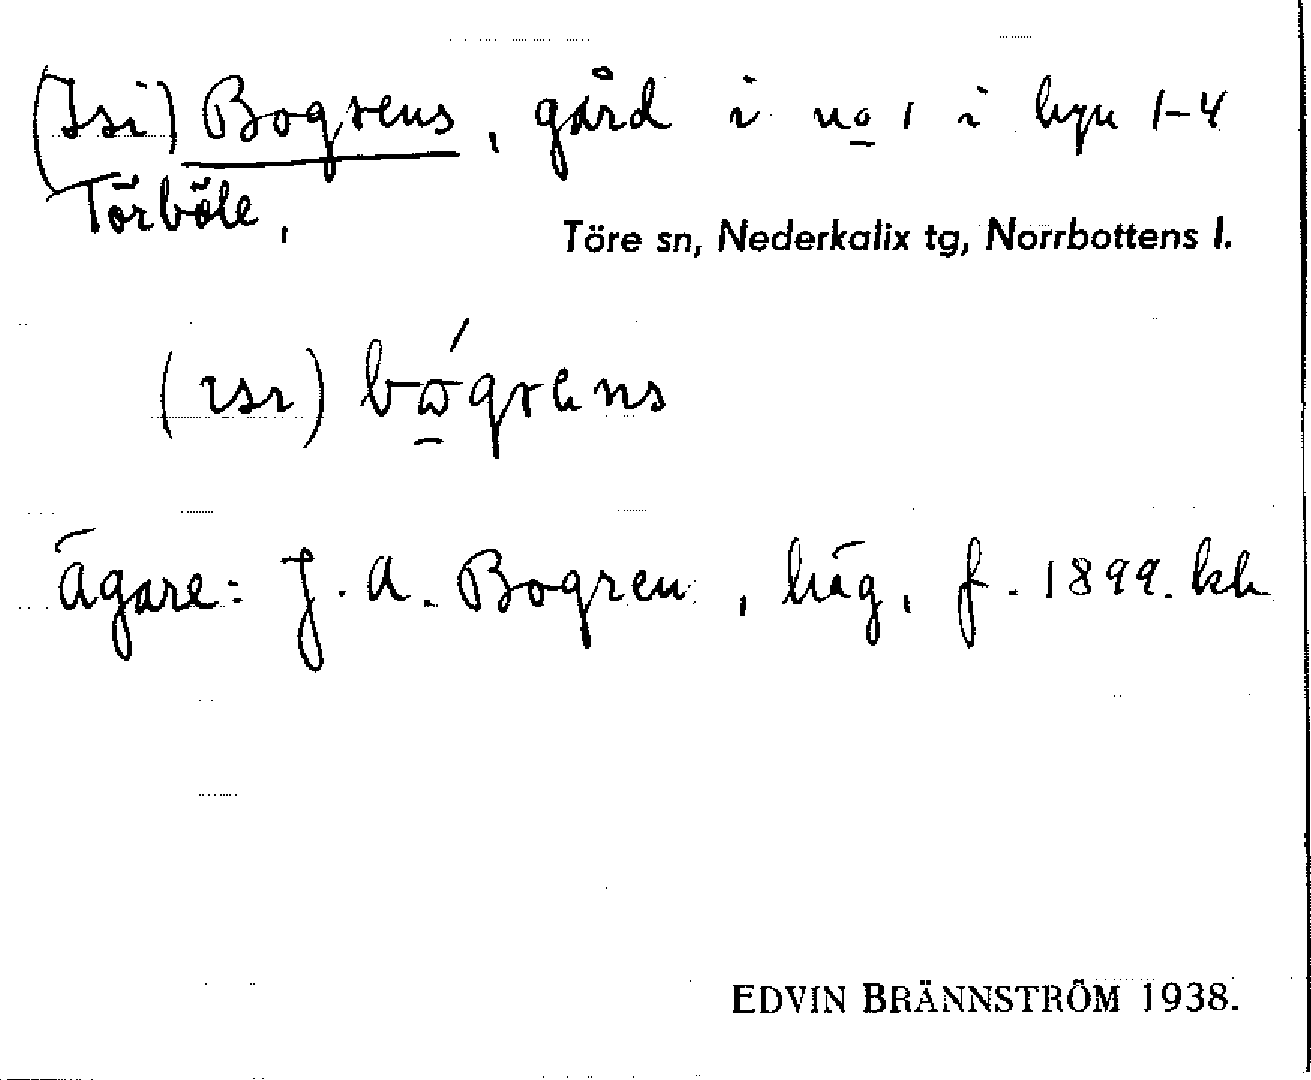 (Isi) Bogrens, gård i no 1 i byn 1-4
Törböle,
Töre sn, Nederkalix tg, Norrbottens l.
(ısı) bógrens
ägare: J. A. Bogren, häg, f. 1899. kh
EDVIN BRÄNNSTRÖM 1938.